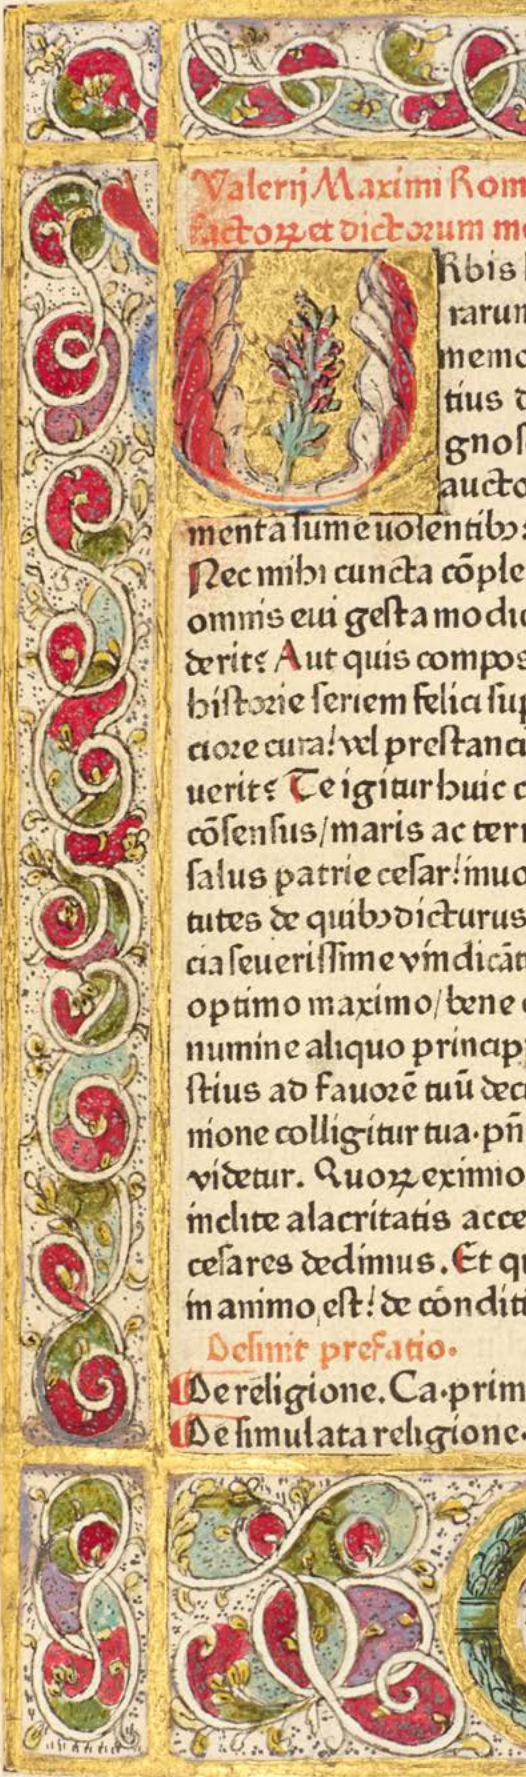 Valerij Maximi Rom
factoꝝ et dictorum me
Rbis
rarun
memo
tius d
gnos
aucto
menta sume uolentibꝫ:
Nec mihi cuncta cōple
omnis eui gesta modic
derit? Aut quis compos
historie seriem felici sup
ciore cura! vel prestanci
uerit? Te igitur huic c
cōsensus/maris ac terr
salus patrie cesar! inuo
tutes de quibꝫ dicturus
cia seuerissime vindicāt
optimo maximo/bene
numine aliquo princip
stius ad fauorē tuū dec
nione colligitur tua. pn̄
videtur. Quoꝝ eximio
inclite alacritatis acce
cesares dedimus. Et qu
in animo est! de conditi
Desinit prefatio.
De religione. Ca. prim
De simulata religione.